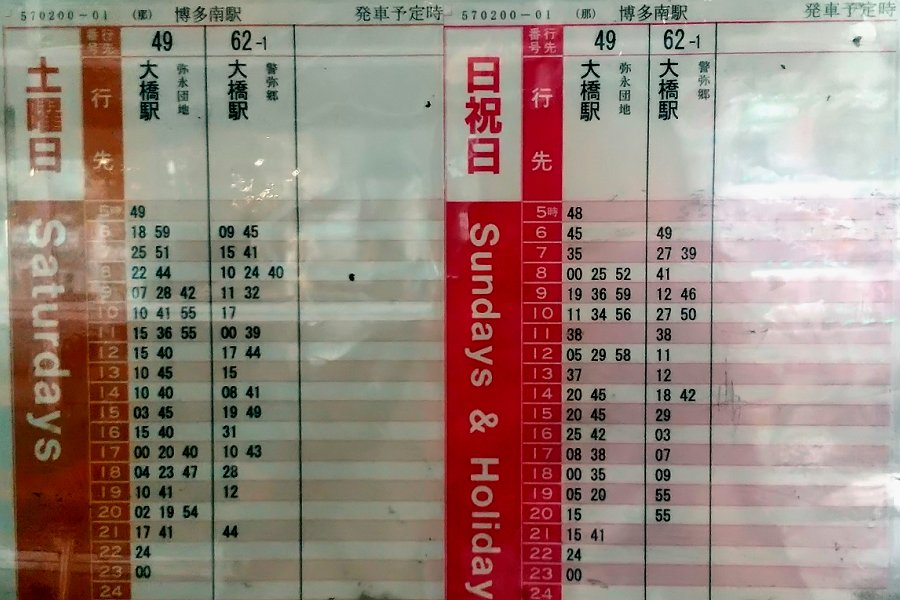 570200-01 (那) 博多南駅 発車予定時
行先番号 49 62-1
土曜日 行先 大橋駅 弥永団地 大橋駅 警弥郷
Saturdays
5時 49
6 18 59 09 45
7 25 51 15 41
8 22 44 10 24 40
9 07 28 42 11 32
10 10 41 55 17
11 15 36 55 00 39
12 15 40 17 44
13 10 45 15
14 10 40 08 41
15 03 45 19 49
16 15 40 31
17 00 20 40 10 43
18 04 23 47 28
19 10 41 12
20 02 19 54
21 17 41 44
22 24
23 00
24
570200-01 (那) 博多南駅 発車予定時
行先番号 49 62-1
日祝日 行先 大橋駅 弥永団地 大橋駅 警弥郷
Sundays & Holiday
5時 48
6 45 49
7 35 27 39
8 00 25 52 41
9 19 36 59 12 46
10 11 34 56 27 50
11 38 38
12 05 29 58 11
13 37 12
14 20 45 18 42
15 20 45 29
16 25 42 03
17 08 38 07
18 00 35 09
19 05 20 55
20 15 55
21 15 41
22 24
23 00
24